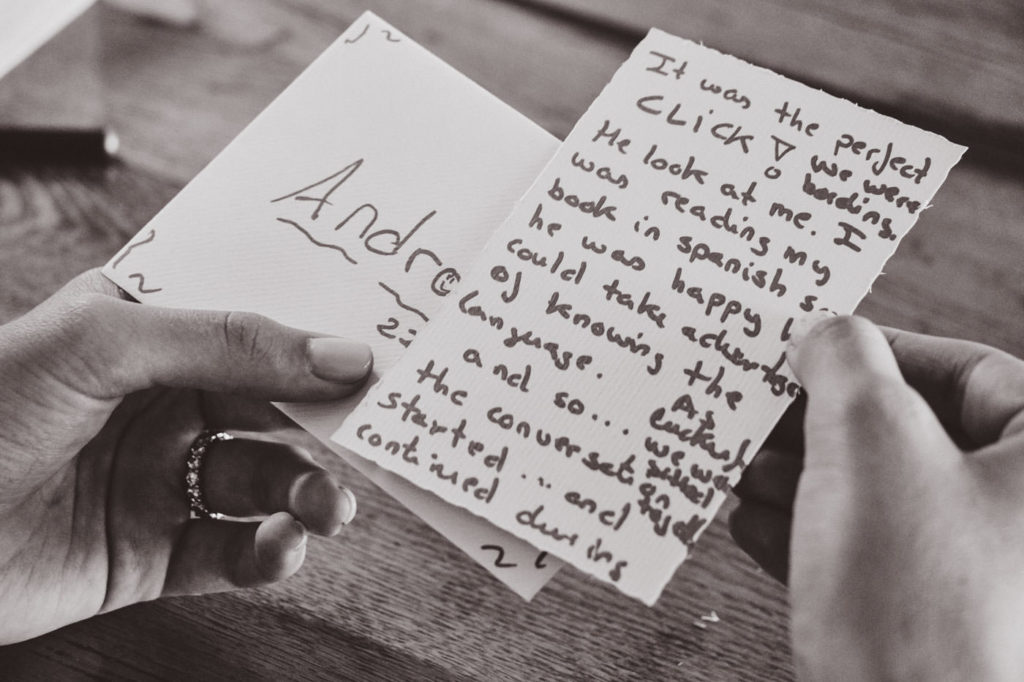 Andre
It was the perfect
CLICK! we were
bording.
He look at me. I
was reading my
book in spanish so
he was happy
could take advantage
of knowing the
language. As
luckily
and so... we were
the conversation
started... and
continued during